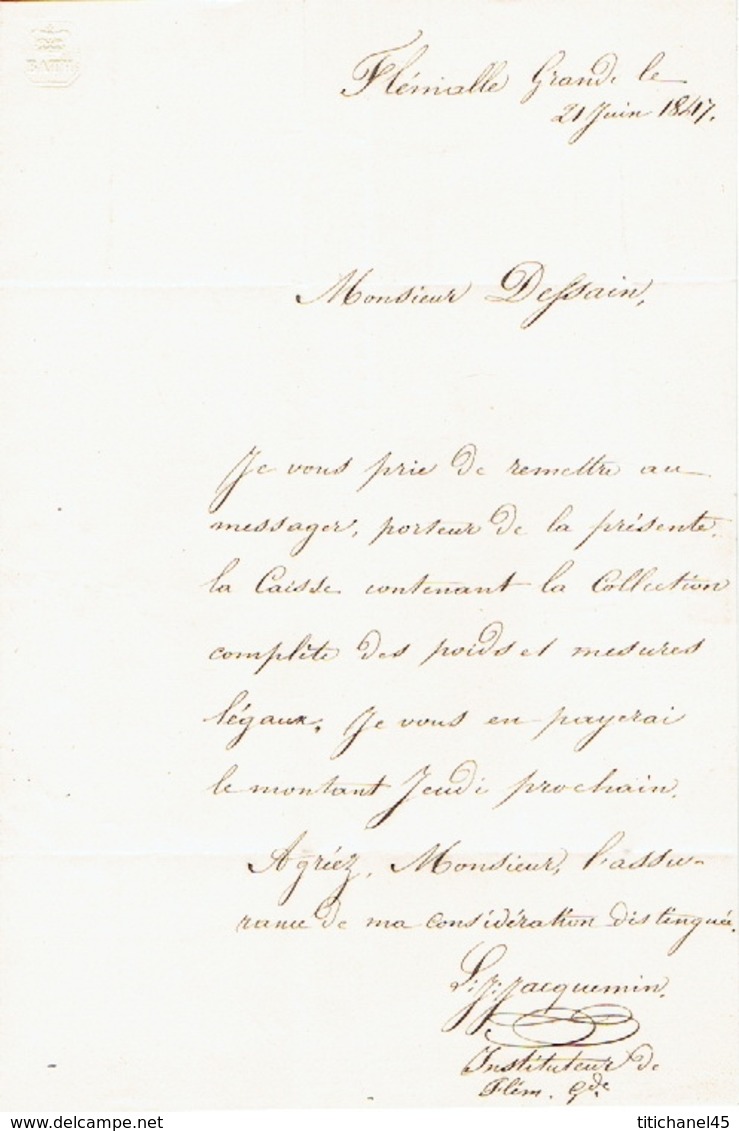 BATH
Flémalle Grande le
21 Juin 1847.
Monsieur Dessain,
Je vous prie de remettre au
messager, porteur de la présente,
la Caisse contenant la Collection
complète des poids et mesures
légaux. Je vous en payerai
le montant Jeudi prochain.
Agréez, Monsieur, l'assu-
rance de ma considération distinguée.
L. J. Jacquemin.
Instituteur de
Flém. Gde.
titichanel45